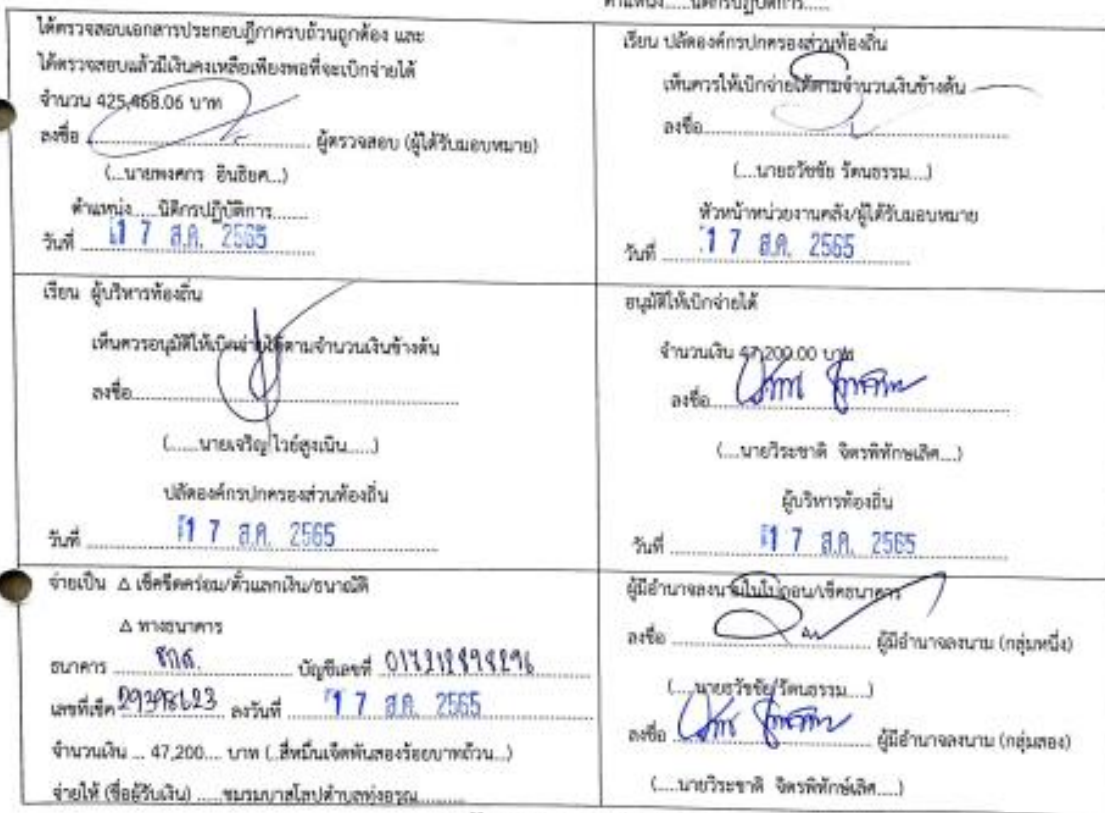 ตำแหน่ง.....นิติกรปฏิบัติการ.....
ได้ตรวจสอบเอกสารประกอบฎีกาครบถ้วนถูกต้อง และ
ได้ตรวจสอบแล้วมีเงินคงเหลือเพียงพอที่จะเบิกจ่ายได้
จำนวน 425,468.06 บาท
ลงชื่อ ผู้ตรวจสอบ (ผู้ได้รับมอบหมาย)
(...นายพงศกร อินธิยศ...)
ตำแหน่ง.....นิติกรปฏิบัติการ.......
วันที่ 17 ส.ค. 2565
เรียน ปลัดองค์กรปกครองส่วนท้องถิ่น
เห็นควรให้เบิกจ่ายได้ตามจำนวนเงินข้างต้น
ลงชื่อ
(....นายธวัชชัย รัตนธรรม....)
หัวหน้าหน่วยงานคลัง/ผู้ได้รับมอบหมาย
วันที่ 17 ส.ค. 2565
เรียน ผู้บริหารท้องถิ่น
เห็นควรอนุมัติให้เบิกจ่ายได้ตามจำนวนเงินข้างต้น
ลงชื่อ
(......นายเจริญ ไวย์สูงเนิน.....)
ปลัดองค์กรปกครองส่วนท้องถิ่น
วันที่ 17 ส.ค. 2565
อนุมัติให้เบิกจ่ายได้
จำนวนเงิน 47,200.00 บาท
ลงชื่อ
(....นายวิระชาติ จิตรพิทักษเลิศ....)
ผู้บริหารท้องถิ่น
วันที่ 17 ส.ค. 2565
จ่ายเป็น Δ เช็คขีดคร่อม/ตั๋วแลกเงิน/ธนาณัติ
Δ ทางธนาคาร
ธนาคาร ธกส. บัญชีเลขที่
เลขที่เช็ค 29398623 ลงวันที่ 17 ส.ค. 2565
จำนวนเงิน ... 47,200.... บาท (..สี่หมื่นเจ็ดพันสองร้อยบาทถ้วน...)
จ่ายให้ (ชื่อผู้รับเงิน) .....ชมรมบาสโลปตำบลทุ่งอรุณ
ผู้มีอำนาจลงนามในใบถอน/เช็คธนาคาร
ลงชื่อ ผู้มีอำนาจลงนาม (กลุ่มหนึ่ง)
(....นายธวัชชัย รัตนธรรม....)
ลงชื่อ ผู้มีอำนาจลงนาม (กลุ่มสอง)
(....นายวิระชาติ จิตรพิทักษ์เลิศ....)